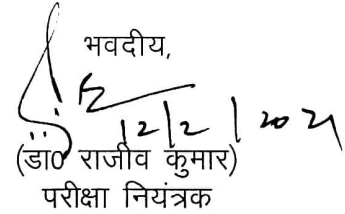 भवदीय,
12/2/2021
(डा0 राजीव कुमार)
परीक्षा नियंत्रक